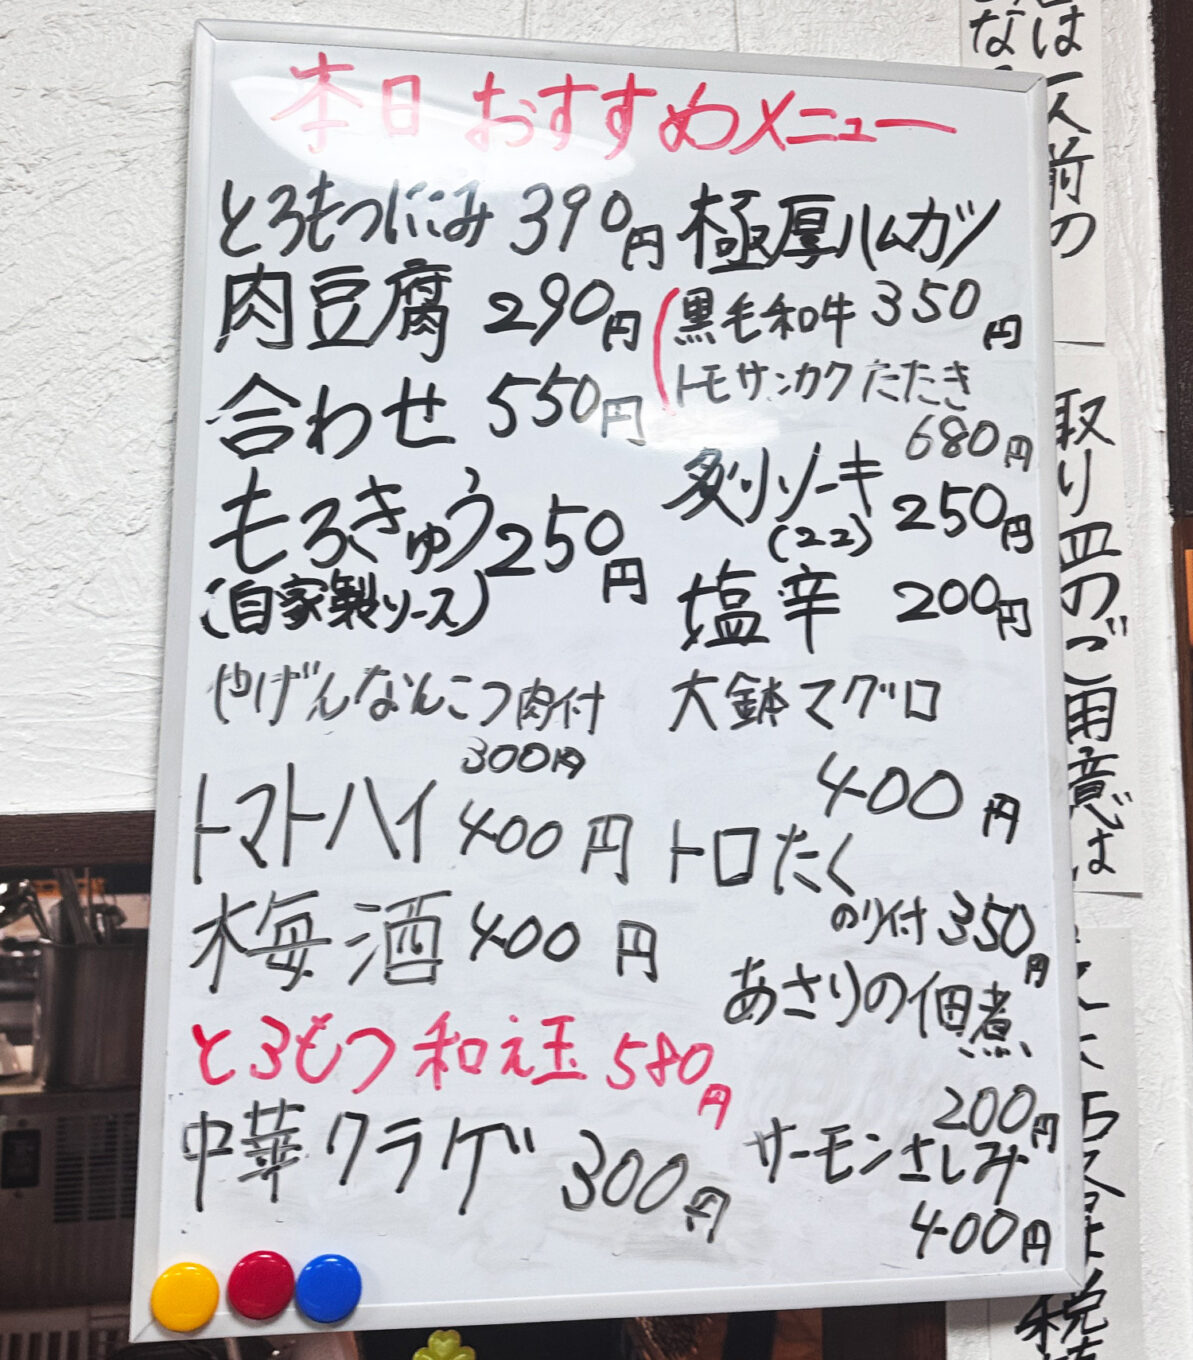 本日おすすめメニュー
とろもつにこみ 390円
肉豆腐 290円
合わせ 550円
もろきゅう 250円
(自家製ソース)
やげんなんこつ肉付
300円
トマトハイ 400円
梅酒 400円
とろもつ和え玉 580円
中華クラゲ 300円
極厚ハムカツ
350円
黒毛和牛
トモサンカクたたき
680円
炙りソーキ
(22) 250円
塩辛 200円
大鉢マグロ
400円
トロたく
のり付 350円
あさりの佃煮
200円
サーモンさしみ
400円
は一人前の
取り皿のご用意は